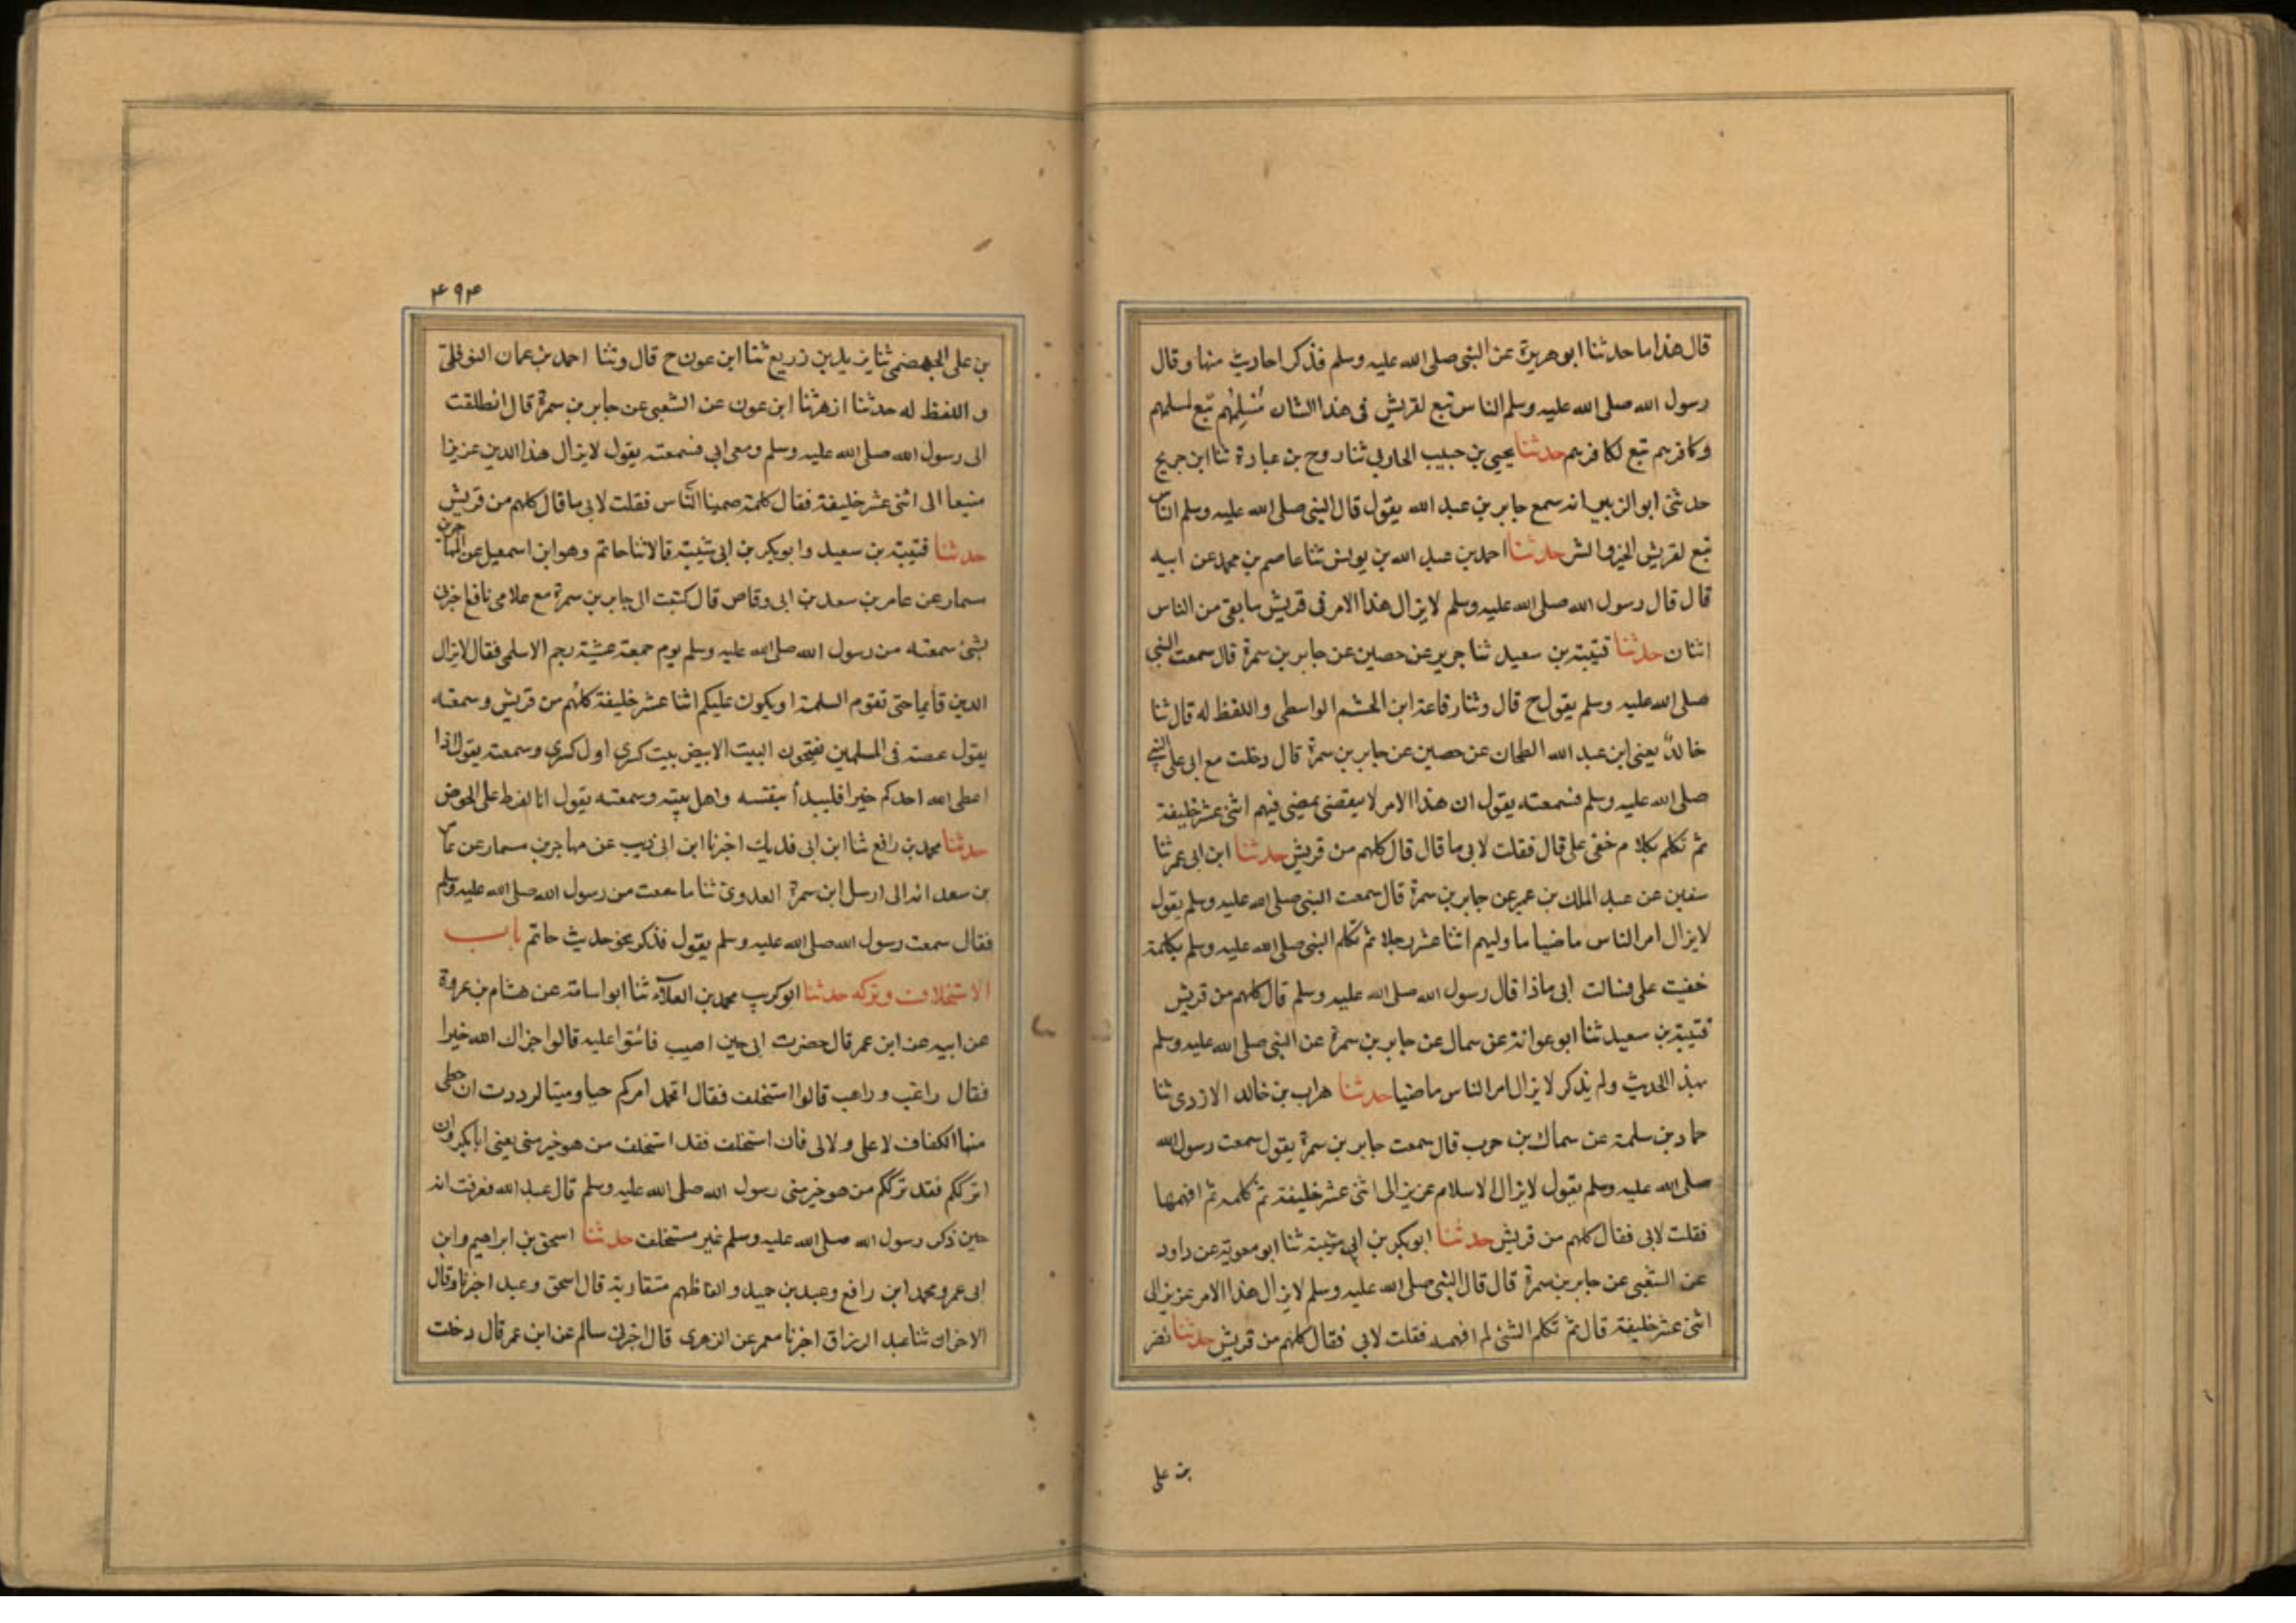 قال هذا ما حدثنا ابو هريرة عن النبى صلى الله عليه وسلم فذكر احاديث منها وقال
رسول الله صلى الله عليه وسلم الناس تبع لقريش فى هذا الشان مُسْلِمُهُم تبع لمسلمهم
وكافرهم تبع لكافرهم حدثنا يحيى بن حبيب الحاربى ثنا روح بن عبادة ثنا ابن جريج
حدثنى ابو الزبير انه سمع جابر بن عبد الله يقول قال النبى صلى الله عليه وسلم الناس
تبع لقريش الخير والشر حدثنا احمد بن عبد الله بن يونس ثنا عاصم بن محمد عن ابيه
قال قال رسول الله صلى الله عليه وسلم لا يزال هذا الامر فى قريش ما بقى من الناس
اثنان حدثنا قتيبة بن سعيد ثنا جرير عن حصين عن جابر بن سمرة قال سمعت النبى
صلى الله عليه وسلم يقول ح قال وثنا رفاعة ابن الحشم الواسطى واللفظ له قال ثنا
خالدٌ يعنى ابن عبد الله الطحان عن حصين عن جابر بن سمرة قال دخلت مع ابى على النبى
صلى الله عليه وسلم فسمعته يقول ان هذا الامر لا ينقضى يمضى فيهم اثنى عشر خليفة
ثم تكلم بكلام خفى على قال فقلت لابى ما قال قال كلهم من قريش حدثنا ابن ابى عمر ثنا
سفين عن عبد الملك بن عمير عن جابر بن سمرة قال سمعت النبى صلى الله عليه وسلم يقول
لا يزال امر الناس ماضيا ما وليهم اثنا عشر رجلا ثم تكلم النبى صلى الله عليه وسلم بكلمة
خفيت على فسالت ابى ماذا قال رسول الله صلى الله عليه وسلم قال كلهم من قريش
قتيبة بن سعيد ثنا ابو عوانة عن سمال عن جابر بن سمرة عن النبى صلى الله عليه وسلم
بهذا الحديث ولم يذكر لا يزال امر الناس ماضيا حدثنا هراب بن خالد الازدى ثنا
حماد بن سلمة عن سماك بن حرب قال سمعت جابر بن سمرة يقول سمعت رسول الله
صلى الله عليه وسلم يقول لا يزال الاسلام عزيز الى اثنى عشر خليفة ثم كلمه ثم افهمها
فقلت لابى فقال كلهم من قريش حدثنا ابو بكر بن ابى شيبة ثنا ابو معوية عن داود
عن الشعبى عن جابر بن سمرة قال قال النبى صلى الله عليه وسلم لا يزال هذا الامر عزيز الى
اثنى عشر خليفة قال ثم تكلم الشئ لم افهمه فقلت لابى فقال كلهم من قريش حدثنا نضر
بن على
۴۹۴
بن على الجهضمى ثنا يزيد بن زريع ثنا ابن عون ح قال وثنا احمد بن عمان النوفلى
واللفظ له حدثنا ازهر ثنا ابن عون عن الشعبى عن جابر بن سمرة قال انطلقت
الى رسول الله صلى الله عليه وسلم ومعى ابى فسمعته يقول لا يزال هذا الدين عزيزا
منيعا الى اثنى عشر خليفة فقال كلمة صمينا الناس فقلت لابى ما قال كلهم من قريش
حدثنا قتيبة بن سعيد وابو بكر بن ابى شيبة قالا ثنا حاتم وهو ابن اسمعيل عن المهاجر بن
سمار عن عامر بن سعد بن ابى وقاص قال كتبت الى جابر بن سمرة مع غلامى نافع اخبرنى
بشئ سمعته من رسول الله صلى الله عليه وسلم يوم جمعة عشية رجم الاسلمى فقال لا يزال
الدين قأيما حتى تقوم السلمة او يكون عليكم اثنا عشر خليفة كلهُم من قريش وسمعته
يقول عصته فى المسلمين يفتحون البيت الابيض بيت كسرى اول كسرى وسمعته يقول اذا
اعطى الله احدكم خيرا فليبدأ بنفسه واهل بيته وسمعته يقول انا لفرط على الحوض
حدثنا محمد بن رافع ثنا ابن ابى فديك اخبرنا ابن ابى ذيب عن مهاجر بن سمار عن عامر
بن سعد انه الى ارسل ابن سمرة العدوى ثنا ما سمعت من رسول الله صلى الله عليه وسلم
فقال سمعت رسول الله صلى الله عليه وسلم يقول فذكر نحو حديث حاتم باب
الاستخلاف وتركه حدثنا ابو كريب محمد بن العلآء ثنا ابو اسامة عن هشام بن عروة
عن ابيه عن ابن عمر قال حضرت ابى حين اصيب فاثنوا عليه قالوا جزاك الله خيرا
فقال راغب وراعب قالوا استخلف فقال اتحمد امركم حيا وميتا لرددت ان حظى
منها الكفاف لا على ولا لى فان استخلف فقد استخلف من هو خير منى يعنى ابا بكر وان
اترككم فقد ترككم من هو خير منى رسول الله صلى الله عليه وسلم قال عبد الله فعرفت انه
حين ذكر رسول الله صلى الله عليه وسلم غير مستخلف حدثنا اسحق بن ابراهيم وابن
ابى عمر ومحمد ابن رافع وعبد بن حميد والفاظهم متقاربة قال اسحق وعبد اخبرنا وقال
الاخران ثنا عبد الرزاق اخبرنا معمر عن الزهرى قال اخبرنى سالم عن ابن عمر قال دخلت